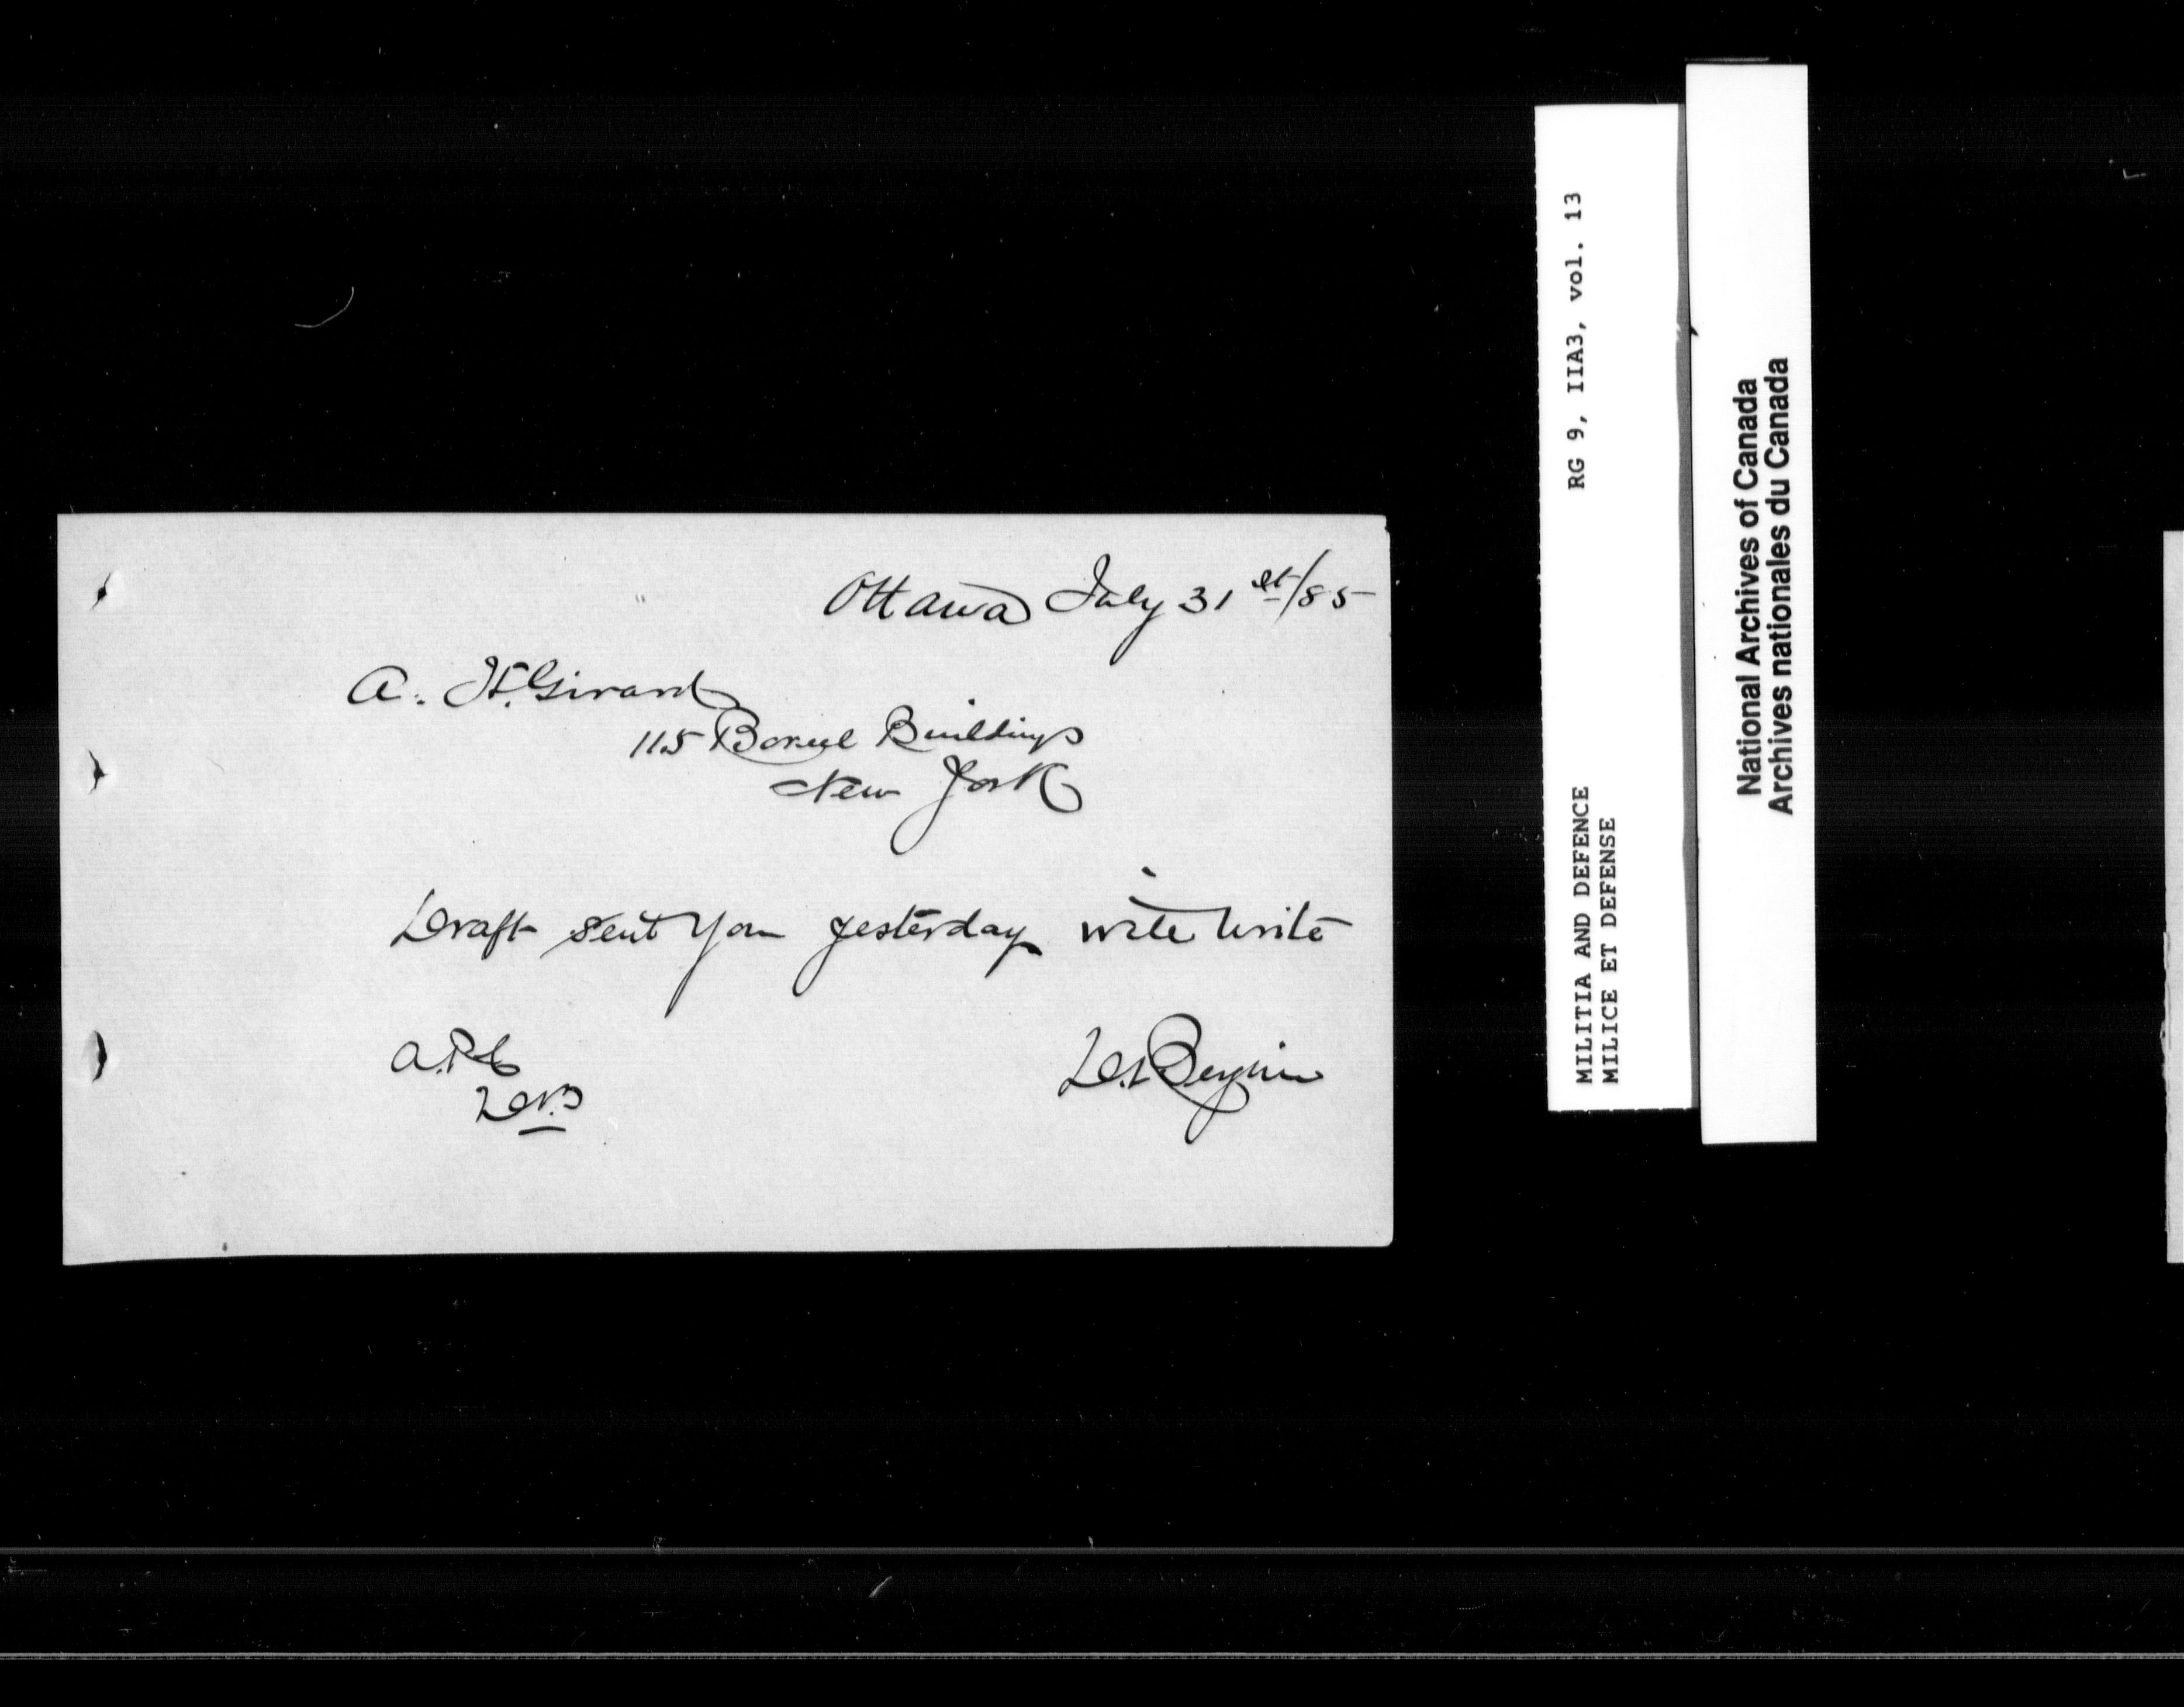 Ottawa July 31st/85
A. H. Girard
115 Boreel Buildings
New York
Draft sent you yesterday will write
MILITIA AND DEFENCE RG 9, IIA3, vol. 13
MILICE ET DEFENSE
National Archives of Canada
Archives nationales du Canada